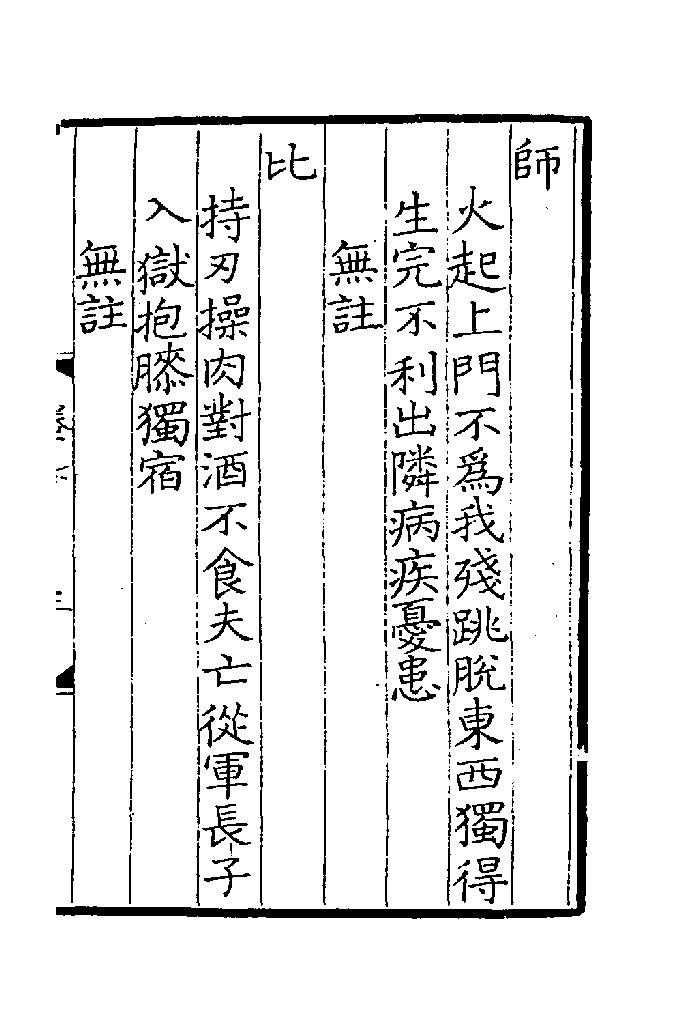 師
火起上門不爲我殘跳脫東西獨得
生完不利出隣病疾憂患
無註
比
持刃操肉對酒不食夫亡從軍長子
入獄抱膝獨宿
無註